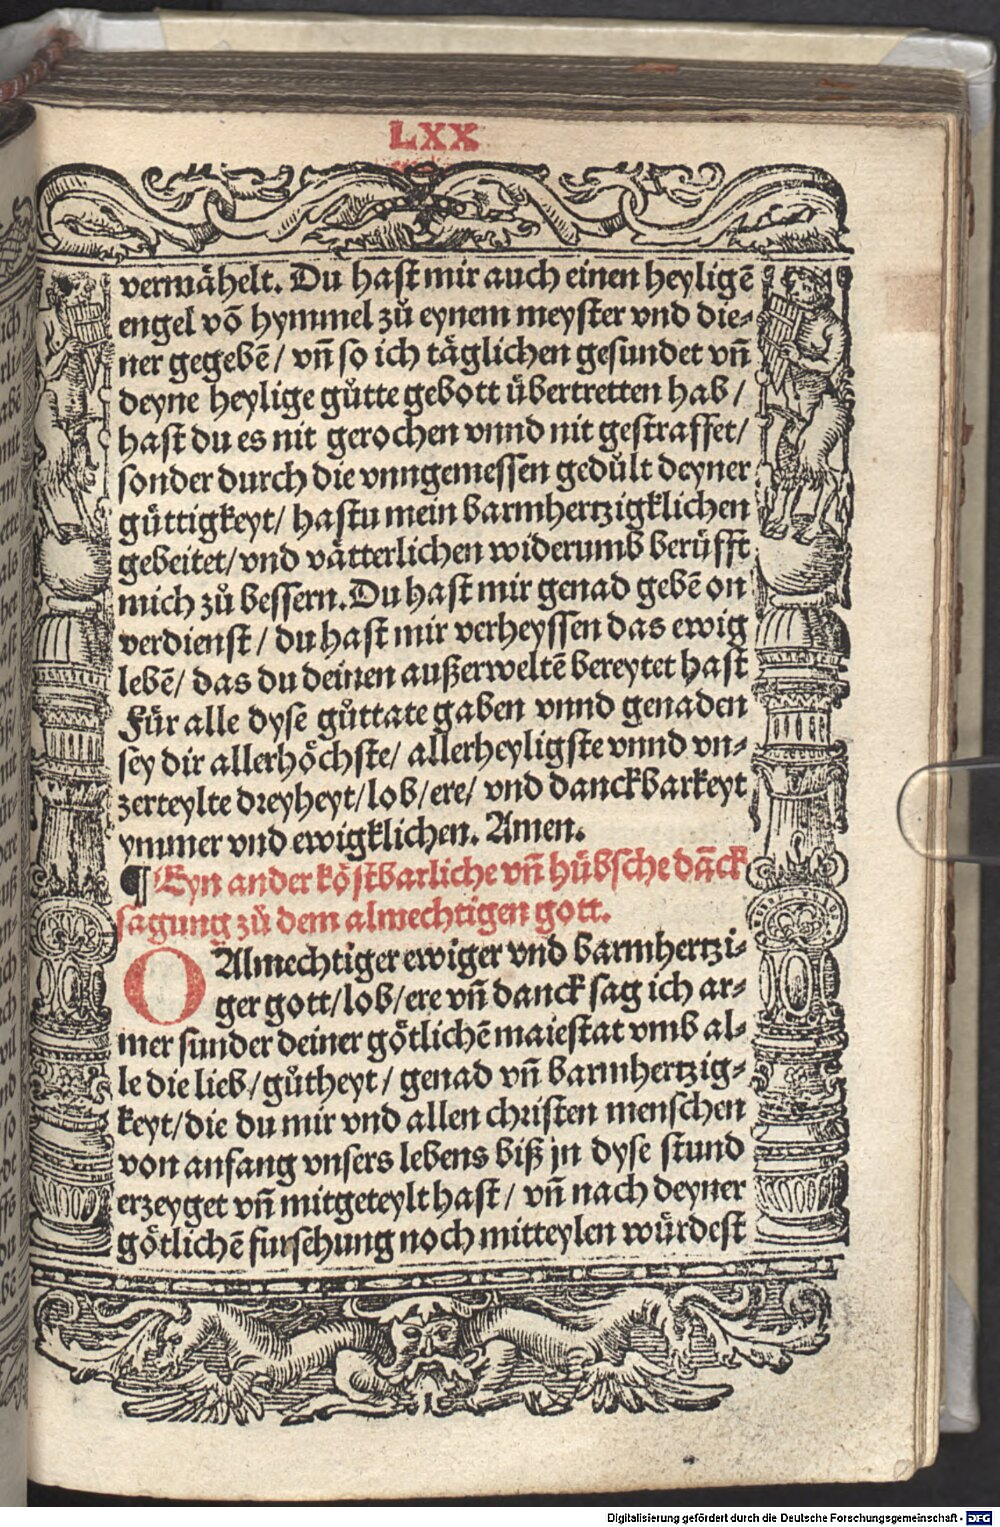 LXX
vermähelt. Du hast mir auch einen heyligē
engel vō hymmel zů eynem meyster vnd die⸗
ner gegebē / vn̄ so ich täglichen gesundet vn̄
deyne heylige gůtte gebott übertretten hab /
hast du es nit gerochen vnnd nit gestraffet /
sonder durch die vnngemessen gedůlt deyner
gůttigkeyt / hastu mein barmhertzigklichen
gebeitet / vnd vätterlichen widerumb berůfft
mich zů bessern. Du hast mir genad gebē on
verdienst / du hast mir verheyssen das ewig
lebē / das du deinen außerweltē bereytet hast
Für alle dyse gůttate gaben vnnd genaden
sey dir allerhöchste / allerheyligste vnnd vn⸗
zerteylte dreyheyt / lob / ere / vnd danckbarkeyt
ymmer vnd ewigklichen. Amen.
¶ Eyn ander köstbarliche vn̄ hübsche dāck
sagung zů dem almechtigen gott.
O Almechtiger ewiger vnd barmhertzi⸗
ger gott / lob / ere vn̄ danck sag ich ar⸗
mer sunder deiner götlichē maiestat vmb al⸗
le die lieb / gůtheyt / genad vn̄ barmhertzig⸗
keyt / die du mir vnd allen christen menschen
von anfang vnsers lebens biß jn dyse stund
erzeyget vn̄ mitgeteylt hast / vn̄ nach deyner
götlichē fursehung noch mitteylen würdest
Digitalisierung gefördert durch die Deutsche Forschungsgemeinschaft - DFG